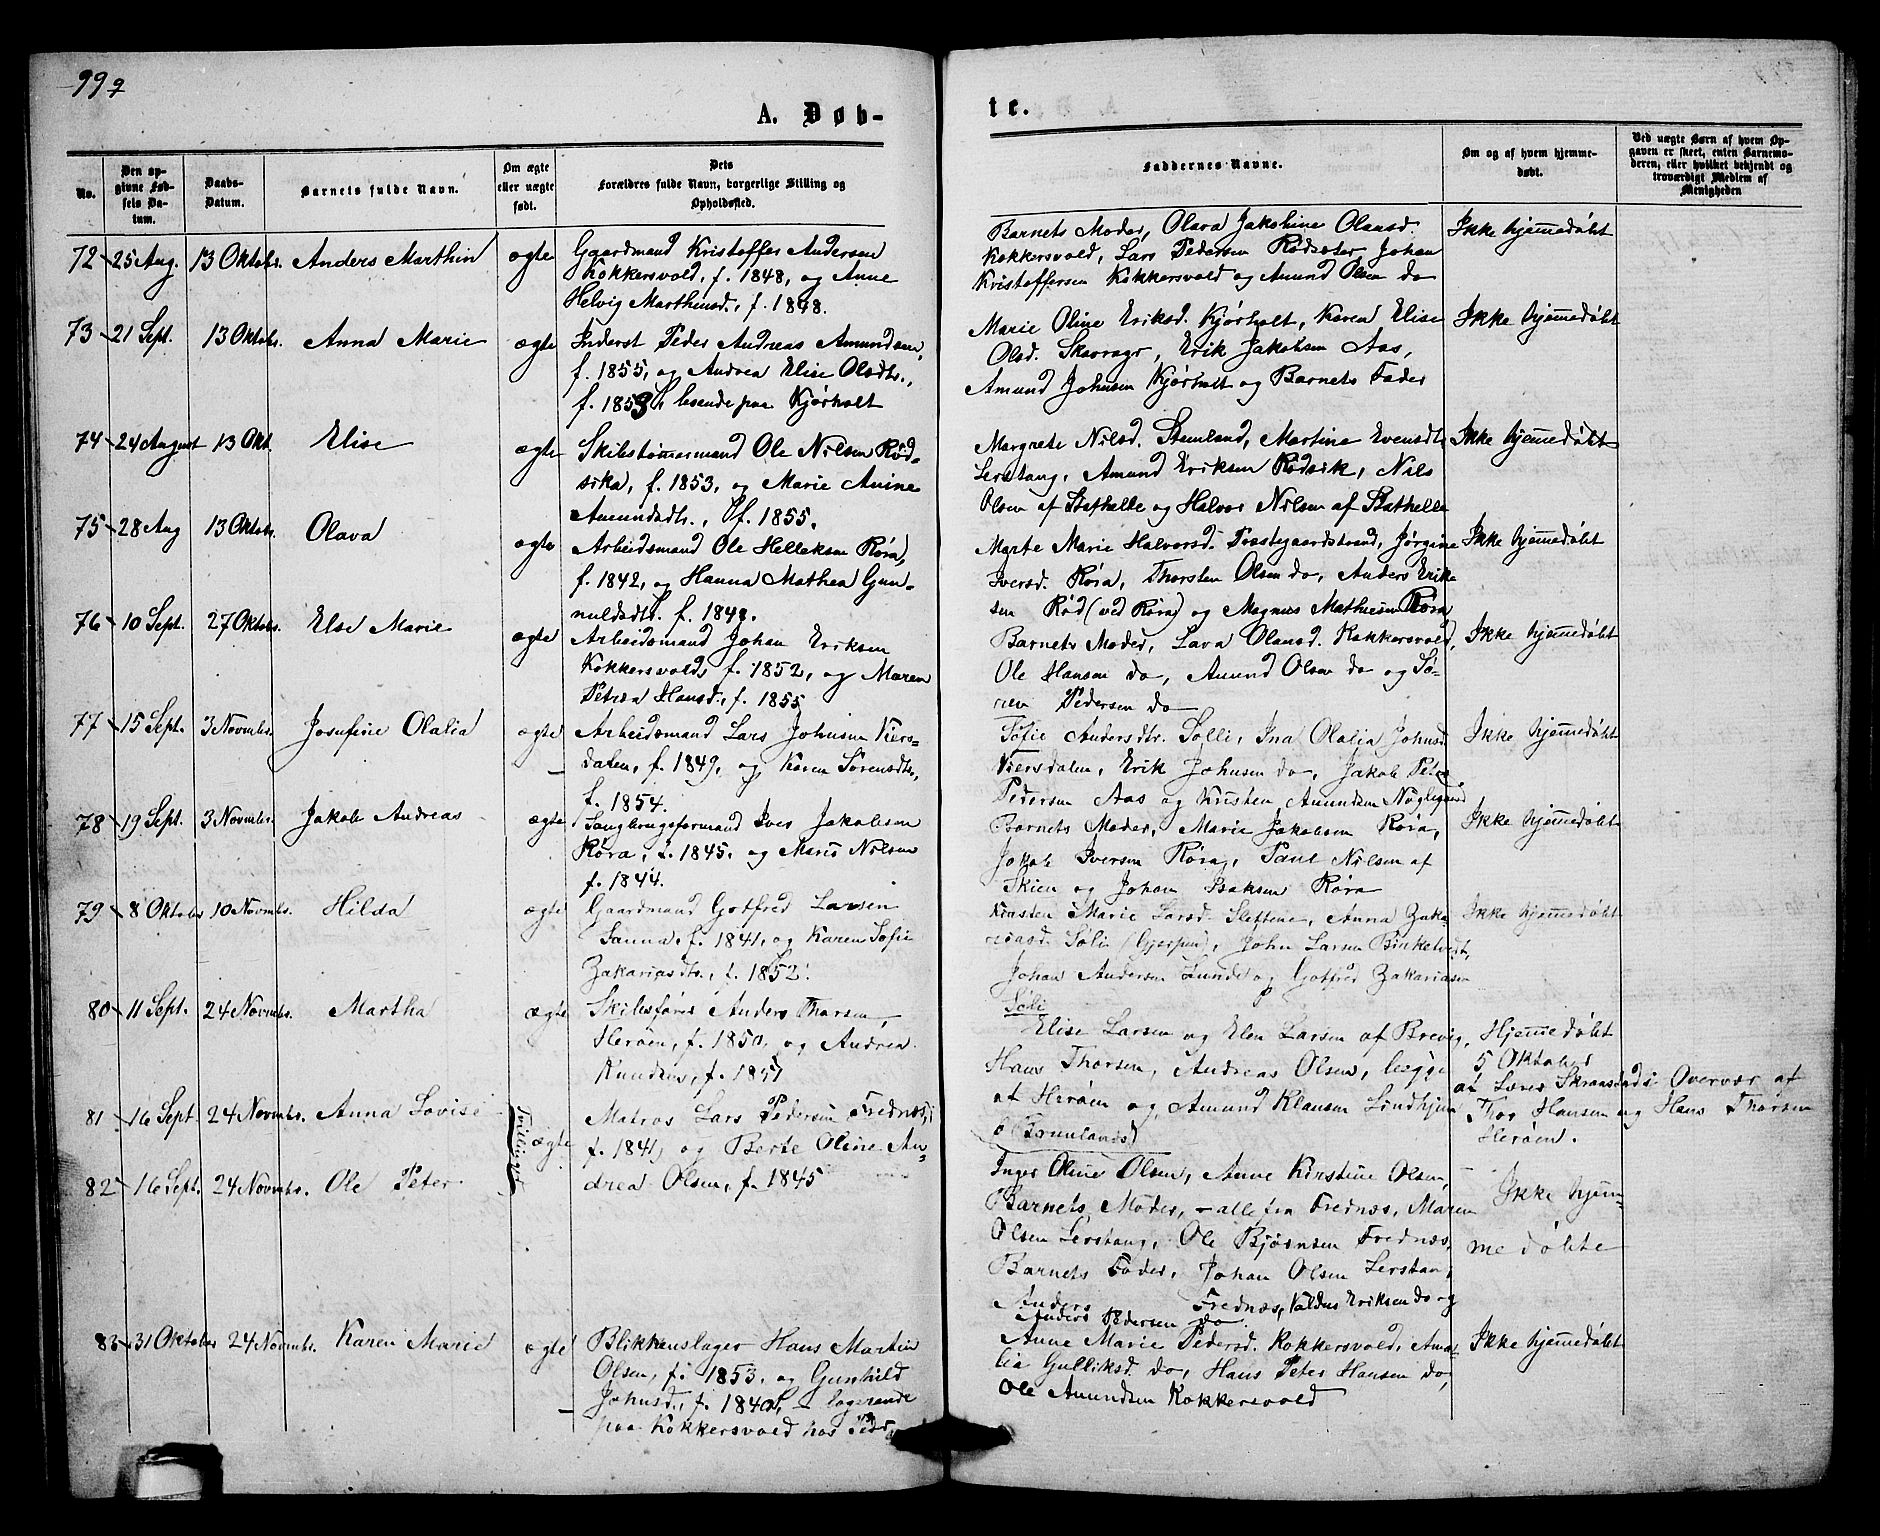 99 2
A. Døb-
te.
No.
Den op-
givne Fød-
sels Da-
tum.
Daabs-
Datum.
Barnets fulde Navn.
Om ægte
eller uægte
født.
Dets
Forældres fulde Navn, borgerlige Stilling og
Opholdssted.
Faddernes Navne.
Om og af hvem hjemme-
døbt.
Ved uægte Børn af hvem Op-
gaven er skeet, enten Barnemo-
deren, eller hvilket bekjendt og
troværdigt Medlem af
Menigheden
72 25 Aug. 13 Oktobr. Anders Marthin ægte Gaardmand Kristoffer Andersen
Kokkersvold, f. 1848, og Anne
Helvig Marthinsd., f. 1848.
Barnets Moder, Olava Jakobine Olausd.
Kokkersvold, Lars Pedersen Rødsæter, Johan
Kristoffersen Kokkersvold og Amund Olsen do
Ikke hjemmedøbt
73 21 Sept. 13 Oktobr. Anna Marie ægte Inderst Peder Andreas Amundsen,
f. 1855, og Andrea Elise Olsdtr.,
f. 1853, boende paa Kjørholt
Marie Oline Eriksd. Kjørholt, Karen Elise
Olsd. Skavrager, Erik Jakobsen Aas,
Amund Johnsen Kjørholt og Barnets Fader
Ikke hjemmedøbt
74 24 August 13 Okt. Elise ægte Skibstømmermand Ole Nilsen Rød-
sika, f. 1853, og Marie Anine
Amundsdtr., f. 1855.
Margrete Nilsd. Stemland, Martina Evensdtr
Lerstang, Amund Eriksen Rødsik, Nils
Olsen af Stathelle og Halvor Nilsen af Stathelle
Ikke hjemmedøbt
75 28 Aug 13 Oktobr. Olava ægte Arbeidsmand Ole Helleksen Røra,
f. 1842, og Hanna Mathea Gun-
nuldsdtr. f. 1848.
Marte Marie Halvorsd. Præstegaardstrand, Jørgine
Iversd. Røra, Thorsten Olsen do, Anders Erik-
sen Rød (ved Røra) og Magnus Mathisen Røra
Ikke hjemmedøbt
76 10 Sept. 27 Oktobr. Else Marie ægte Arbeidsmand Johan Eriksen
Kokkersvold, f. 1852, og Maren
Petrea Hansd., f. 1855
Barnets Moder, Lava Olausd. Kokkersvold,
Ole Hansen do, Amund Olsen do og Sø-
ren Pedersen do
Ikke hjemmedøbt
77 15 Sept. 3 Novmbr. Josefine Olalia ægte Arbeidsmand Lars Johnsen Viers-
dalen, f. 1849, og Karen Sørensdtr.,
f. 1854.
Sofie Andersdtr. Solli, Ina Olalia Johnsd
Viersdalen, Erik Johnsen do, Jakob Peter
Pedersen Aas og Kristen Amundsen Nøglegaard
Ikke hjemmedøbt
78 19 Sept. 3 Novmbr. Jakob Andreas ægte Saugbrugsformand Iver Jakobsen
Røra, f. 1845, og Maris Nilsen
f. 1844.
Barnets Moder, Marie Jakobsen Røra,
Jakob Iversen Røra, Paul Nilsen af
Skien og Johan Isaksen Røra
Ikke hjemmedøbt
79 8 Oktobr 10 Novmbr. Hilda ægte Gaardmand Gotfred Larsen
Sanna, f. 1841, og Karen Sofie
Zakariasdtr., f. 1852.
Kirsten Marie Larsd. Slettene, Anna Zaka-
riasd. Soli (Gjerpen), John Larsen Birketvedt,
Johan Andersen Lunde og Gotfred Zakariasen
Soli
Ikke hjemmedøbt
80 11 Sept. 24 Novmbr. Martha ægte Skibsfører Anders Thorsen,
Herøen, f. 1850, og Andrea
Knudsen, f. 1851
Elise Larsen og Elen Larsen af Brevig,
Hans Thorsen, Andreas Olsen, begge
af Herøen og Amund Klausen Lindhjem
i Brunlanæs
Hjemmedøbt
5 Oktober
af Lærer Skraastad i Overvær af
Thor Hansen og Hans Thorsen
Herøen.
81 16 Sept 24 Novmbr. Anna Lovise Tvillinger ægte Matros Lars Pedersen Frednæs,
f. 1841, og Berte Oline An-
drea Olsen, f. 1845
82 16 Sept. 24 Novmbr. Ole Peter
Inger Oline Olsen, Anne Kirstine Olsen,
Barnets Moder, – alle fra Frednæs, Maren
Olsen Lerstang, Ole Bjørnsen Frednæs,
Barnets Fader, Johan Olsen Lerstang,
Anders Frednæs, Valdus Eriksen do og
Anders Pedersen do
Ikke hjem-
medøbte
83 31 Oktober 24 Novmbr. Karen Marie ægte Blikkenslager Hans Martin
Olsen, f. 1853, og Gunhild
Johnsd., f. 1840, – logerende
paa Kokkersvold hos Peder
Anne Marie Pedersd. Kokkersvold, Ama-
lia Gulliksd. do, Hans Peter Hansen do,
Ole Amundsen Kokkersvold
Ikke hjemmedøbt